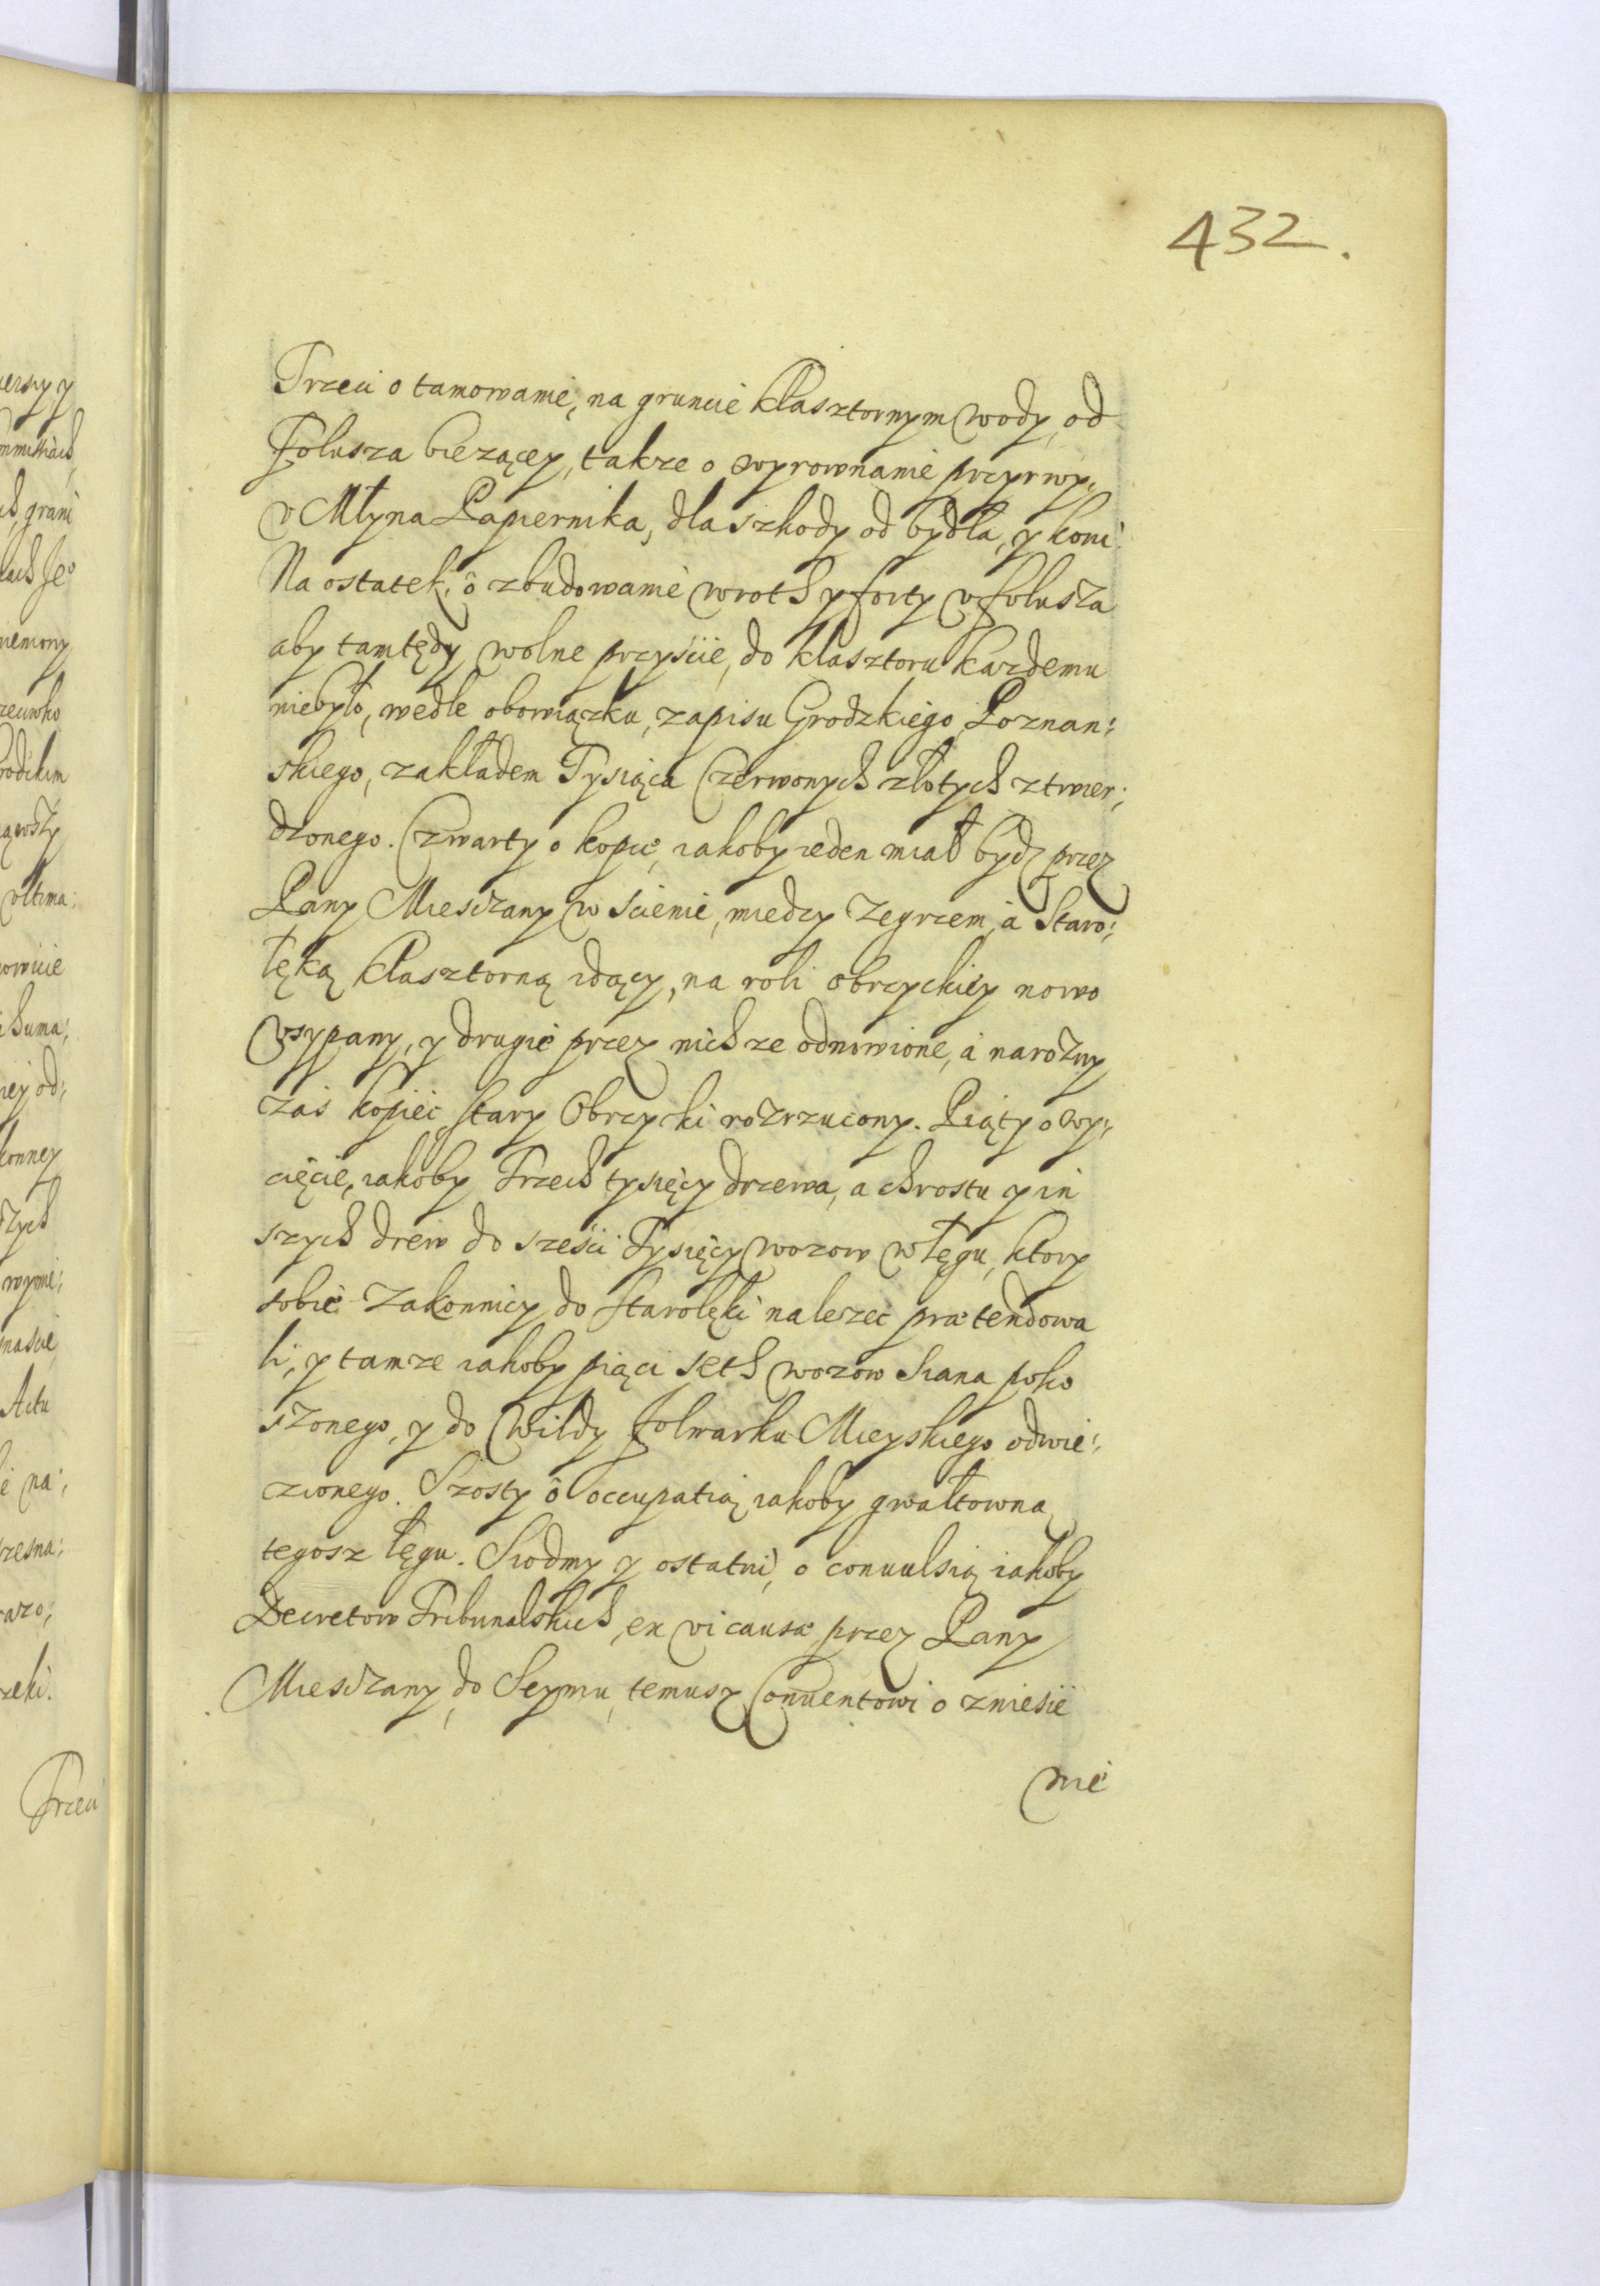 432.
Trzeci o tamowanie, na gruncie klasztornym wody, od
Folusza biezącey, takze o wyrownanie przyrwy,
v Młyna Papiernika, dla szkody od bydła, y koni.
Na ostatek, ô zbudowanie wroth y forty v folusza
aby tamtędy wolne przyście, do klasztoru kazdemu
niebyło, wedle obowiązku, zapisu Grodzkiego Poznan:
skiego, zakładem Tysiąca Czerwonych złotych ztwier:
dzonego. Czwarty o kopce, iakoby ieden miał bydz przez
Pany Miesczany w scienie, miedzy Zegrzem, à Staro:
łęką klasztorną idący, na roli obrzyckiey nowo
vsypany, y drugie przez nich ze odnowione, à narozny
zaś kopiec stary Obrzycki rozrzucony. Piąty o wy:
cięcie, iakoby Trzech tysięcy drzewa, a chrostu y in
szych drew do sześci Tysięcy wozow w łęgu, ktory
sobie Zakonnicy do Starolęki nalezec prætendowa
li, y tamze iakoby piąci seth wozow Siana poko
szonego, y do Wildy folwarku Mieyskiego odwie:
zionego. Szosty ô occupatią iakoby gwałtowną
tegosz łęgu. Siodmy y ostatni, o conuulsią iakoby
Decretow Tribunalskich, ex vi causæ przez Pany
Miesczany, do Seymu, temusz Conuentowi o zniesie
nie
Trzeci